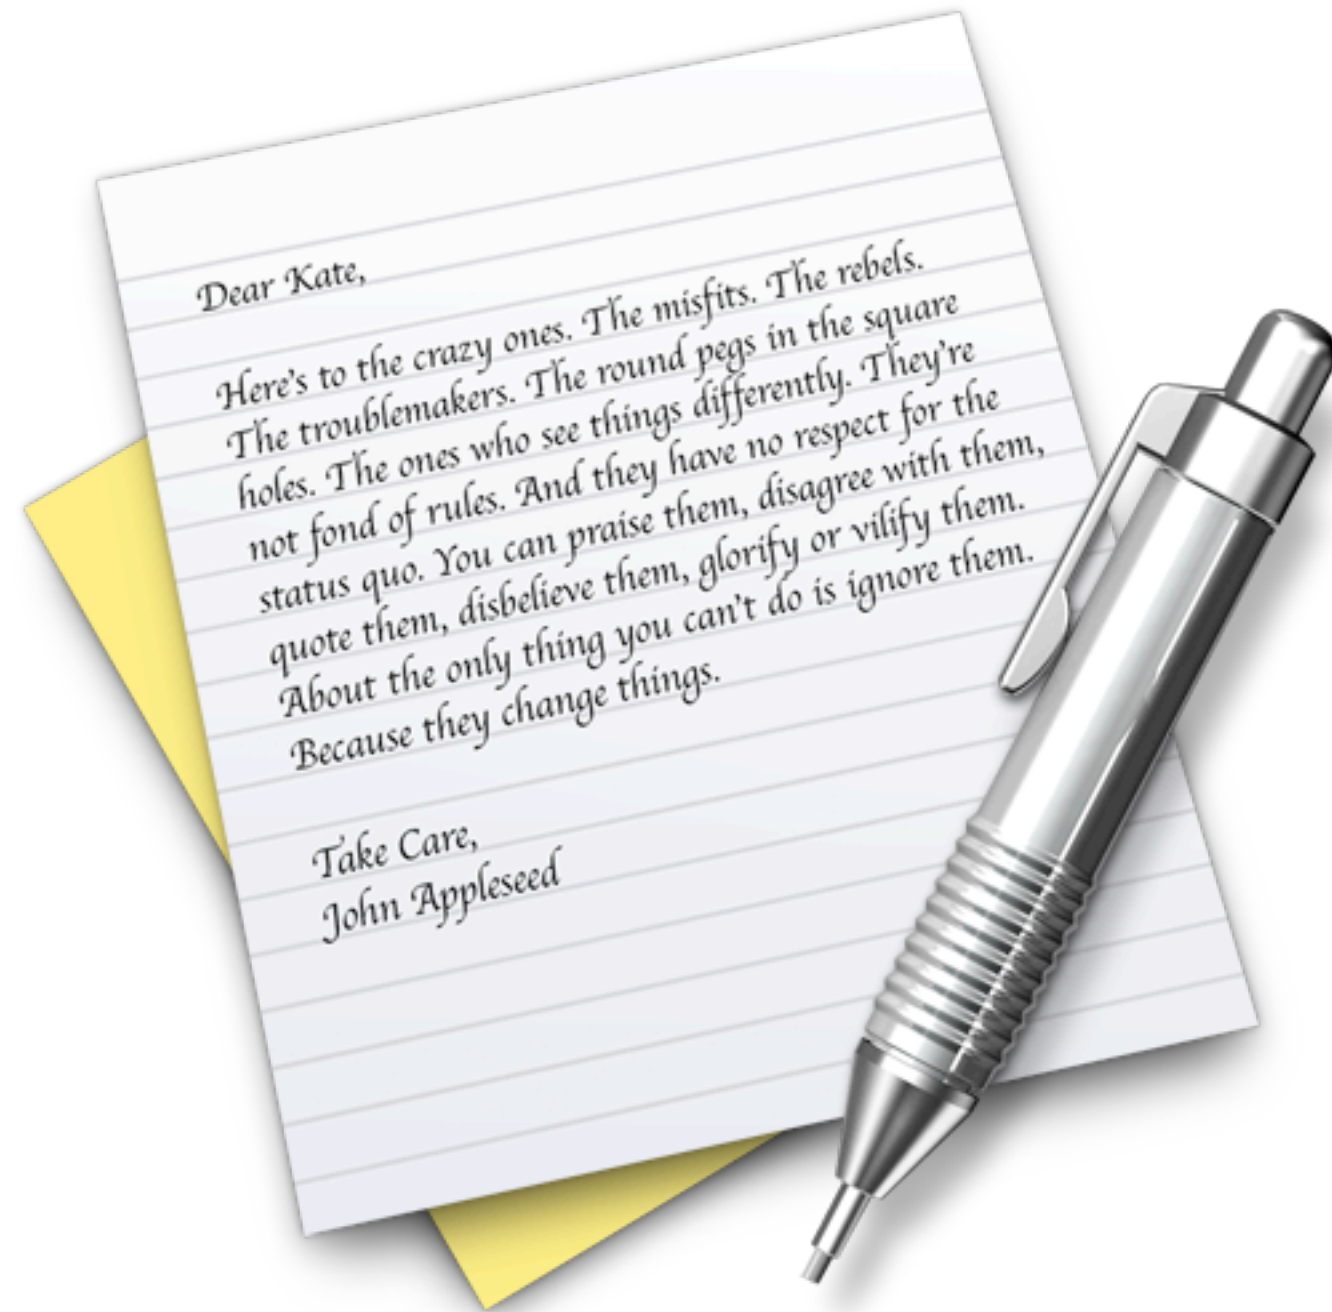 Dear Kate,
Here's to the crazy ones. The misfits. The rebels.
The troublemakers. The round pegs in the square
holes. The ones who see things differently. They're
not fond of rules. And they have no respect for the
status quo. You can praise them, disagree with them,
quote them, disbelieve them, glorify or vilify them.
About the only thing you can't do is ignore them.
Because they change things.
Take Care,
John Appleseed